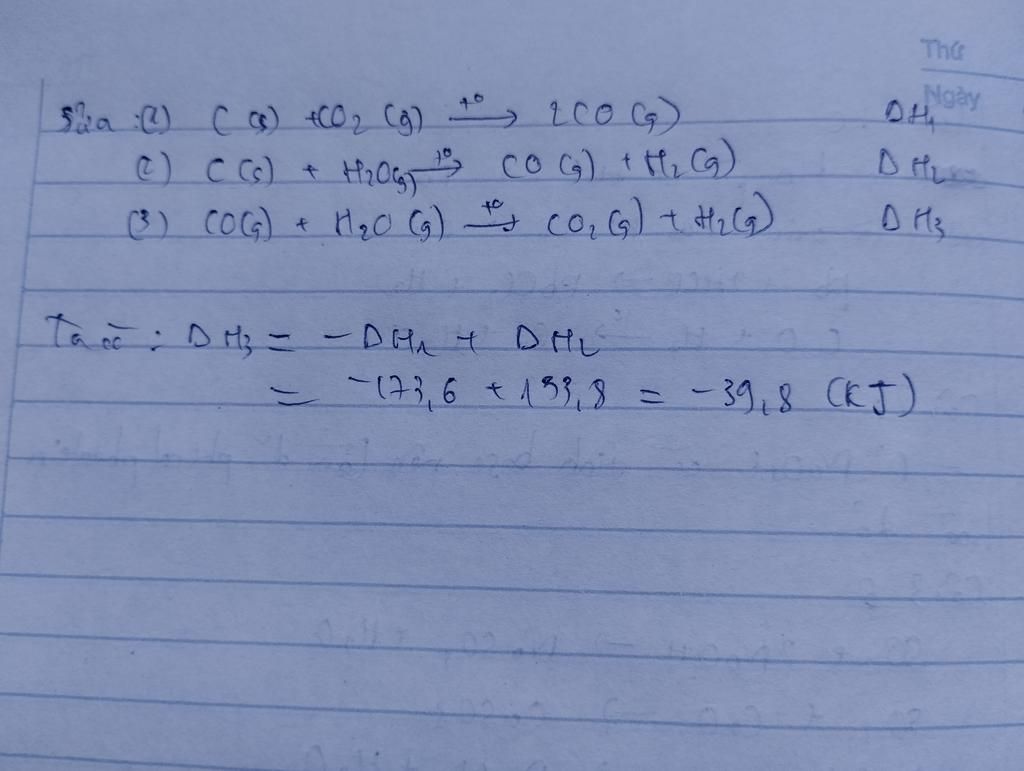 Thứ
Ngày
Sửa : (1) C (s) + CO2 (g) t° → 2CO (g) ΔH1
(2) C (s) + H2O(g) t° → CO (g) + H2 (g) ΔH2
(3) CO(g) + H2O (g) t° → CO2 (g) + H2(g) ΔH3
Ta có : ΔH3 = - ΔH1 + ΔH2
= -173,6 + 133,8 = -39,8 (KJ)